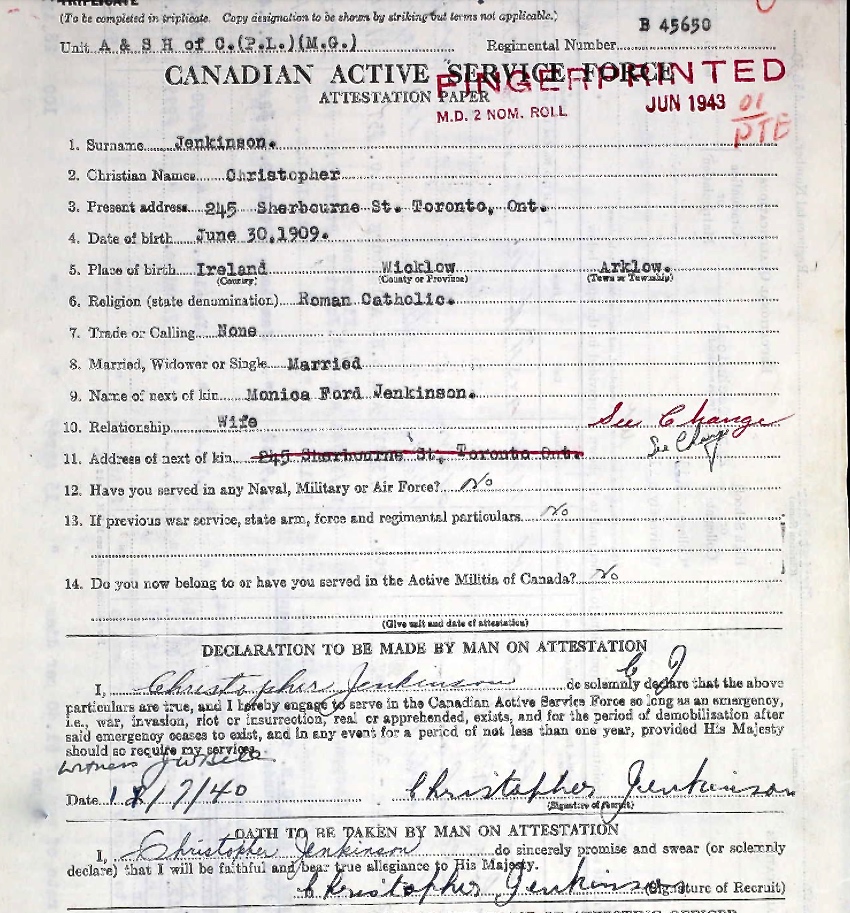 TRIPLICATE
(To be completed in triplicate. Copy designation to be shown by striking out terms not applicable.)
B 45650
Unit A & S H of C.(P.L.)(M.G.) Regimental Number
CANADIAN ACTIVE SERVICE FORCE
FINGERPRINTED
ATTESTATION PAPER
M.D. 2 NOM. ROLL
JUN 1943
01
PTE
1. Surname Jenkinson.
2. Christian Names Christopher
3. Present address 245 Sherbourne St. Toronto, Ont.
4. Date of birth June 30,1909.
5. Place of birth Ireland Wicklow Arklow.
(Country) (County or Province) (Town or Township)
6. Religion (state denomination) Roman Catholic.
7. Trade or Calling None
8. Married, Widower or Single Married
9. Name of next of kin Monica Ford Jenkinson.
10. Relationship Wife See Change
11. Address of next of kin 245 Sherbourne St, Toronto Ont. See Change
12. Have you served in any Naval, Military or Air Force? No
13. If previous war service, state arm, force and regimental particulars No
14. Do you now belong to or have you served in the Active Militia of Canada? No
(Give unit and date of attestation)
DECLARATION TO BE MADE BY MAN ON ATTESTATION
C J
I, Christopher Jenkinson do solemnly declare that the above
particulars are true, and I hereby engage to serve in the Canadian Active Service Force so long as an emergency,
i.e., war, invasion, riot or insurrection, real or apprehended, exists, and for the period of demobilisation after
said emergency ceases to exist, and in any event for a period of not less than one year, provided His Majesty
should so require my services.
Witness J W Bell
Date /7/40 Christopher Jenkinson
(Signature of Recruit)
OATH TO BE TAKEN BY MAN ON ATTESTATION
I, Christopher Jenkinson do sincerely promise and swear (or solemnly
declare) that I will be faithful and bear true allegiance to His Majesty.
Christopher Jenkinson (Signature of Recruit)